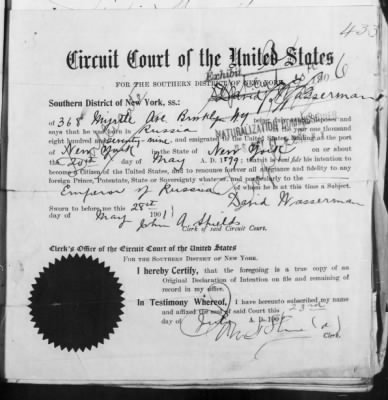 433
Circuit Court of the United States
FOR THE SOUTHERN DISTRICT OF NEW YORK.
Exhibit
Southern District of New York, ss.:
David Wasserman
of 368 Myrtle Ave. Brooklyn Ny being duly sworn deposes and
says that he was born in Russia in the year one thousand
NATURALIZATION
eight hundred and seventy nine, and emigrated to the United States, landing at the port
of New York in the State of New York on or about
the 20th day of May A. D. 1899; that it is bona fide his intention to
become a Citizen of the United States, and to renounce forever all allegiance and fidelity to any
foreign Prince, Potentate, State or Sovereignty whatever, and particularly to the
Emperor of Russia of whom he is at this time a Subject.
Sworn to before me this 25th David Wasserman
day of May 1901
John A. Shields
Clerk of said Circuit Court.
Clerk's Office of the Circuit Court of the United States
FOR THE SOUTHERN DISTRICT OF NEW YORK.
I hereby Certify, that the foregoing is a true copy of an
Original Declaration of Intention on file and remaining of
record in my office.
In Testimony Whereof, I have hereunto subscribed my name
and affixed the seal of said Court this 23rd
day of A. D. 190
Clerk.